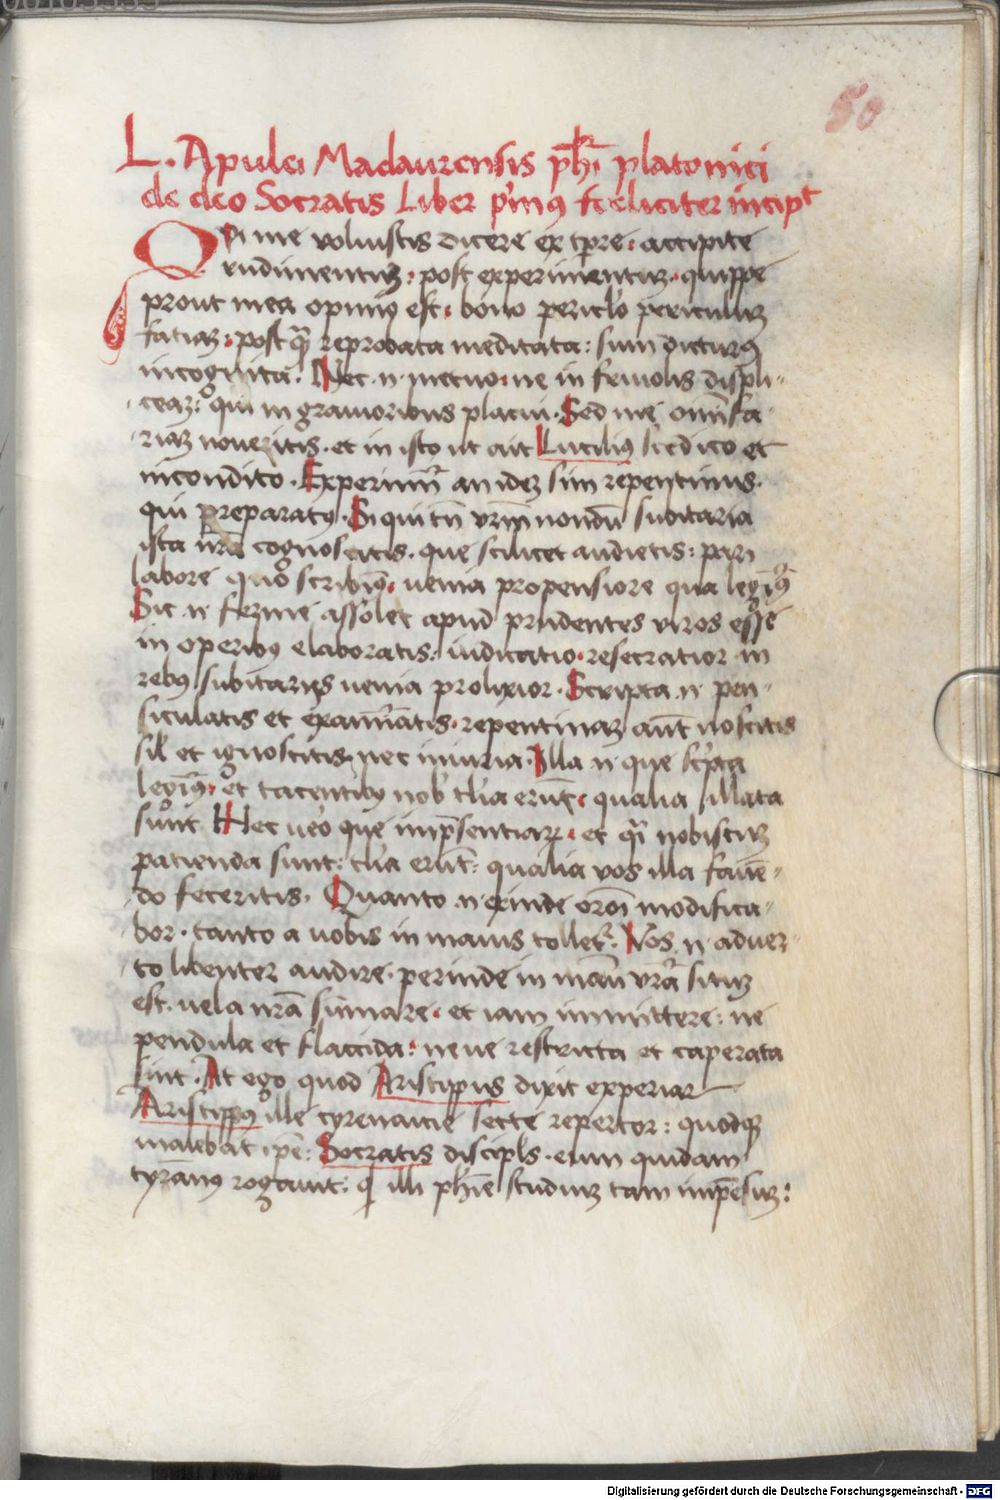 50
L. Apulei Madaurensis ph̅i platonici
de deo Socratis Liber p'mus foeliciter incipt
Qui me voluistis dicere ex tp̅re: accipite
rudimentum: post experimentum. quippe
prout mea opinio est. bono periclo periculum
faciam: postq̅ reprobata meditata: sum dicturus
incognita. Nec .n. metuo ne in friuolis displi-
ceam: qui in grauioribus placui. Sed me omnifa-
riam noueritis. et in isto ut ait Lucilius scedico et
incondito. Experimini an idem sim repentinus.
qui preparatus. Si qui tn̅ vrm̅ nondu̅ subitaria
ista nr̅a cognoscitis. que scilicet audietis: pari
labore quo scribimus. uenia propensiore qua legimus
Sic .n. ferme assolet apud prudentes viros esse
in operibus elaboratis: iudicatio resecratior in
rebus subitariis uenia prolixior. Scripta .n. pen-
siculatis et examinatis. repentinam aut̅ noscitis
sil̅ et ignoscitis nec iniuria. Illa .n. que sc'pta
legimus. et tacentibus nob' tl'ia eru̅t: qualia illata
sunt Hec uero que impr̅sentiarum. et q̅ nobiscum
patienda sunt: tl'ia eru̅t: qualia vos illa faue̅-
do feceritis. Quanto .n. exinde oro̅i modifica-
bor. tanto a uobis in maius tollet'. Vos .n. aduer-
to libenter audire. perinde in manu vr̅a situm
est. uela nr̅a su̅mare. et iam immittere: ne
pendula et flaccida: neue restricta et caperata
sint. At ego quod Aristippus dixit experiar
Aristippus ille cyrenaicie secte repertor: quodque
malebat ip̅e: Socratis discipl's. eum quidam
tyra̅nus rogauit: q illi ph̅ie studium tam impe̅sum:
Digitalisierung gefördert durch die Deutsche Forschungsgemeinschaft - DFG